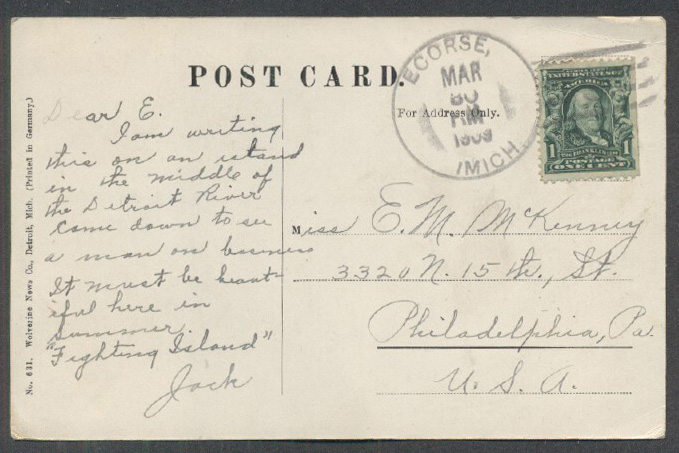 POST CARD.
For Address Only.
ECORSE,
MAR
30
AM
1909
MICH
UNITED STATES OF
AMERICA
1
1
FRANKLIN
POSTAGE
ONE CENT
Dear E.
I am writing
this on an island
in the middle of
the Detroit River
Come down to see
a man on business
It must be beaut-
iful here in
summer.
"Fighting Island"
Jack
Miss E. M. McKenney
3320 N. 15 th., St.
Philadelphia, Pa.
U. S. A.
No. 631. Wolverine News Co., Detroit, Mich. (Printed in Germany.)